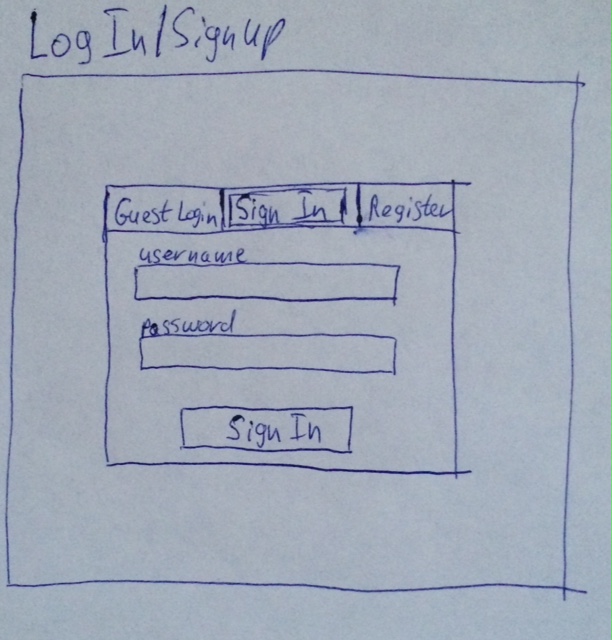 Log In/Signup
Guest Login Sign In Register
username
password
Sign In